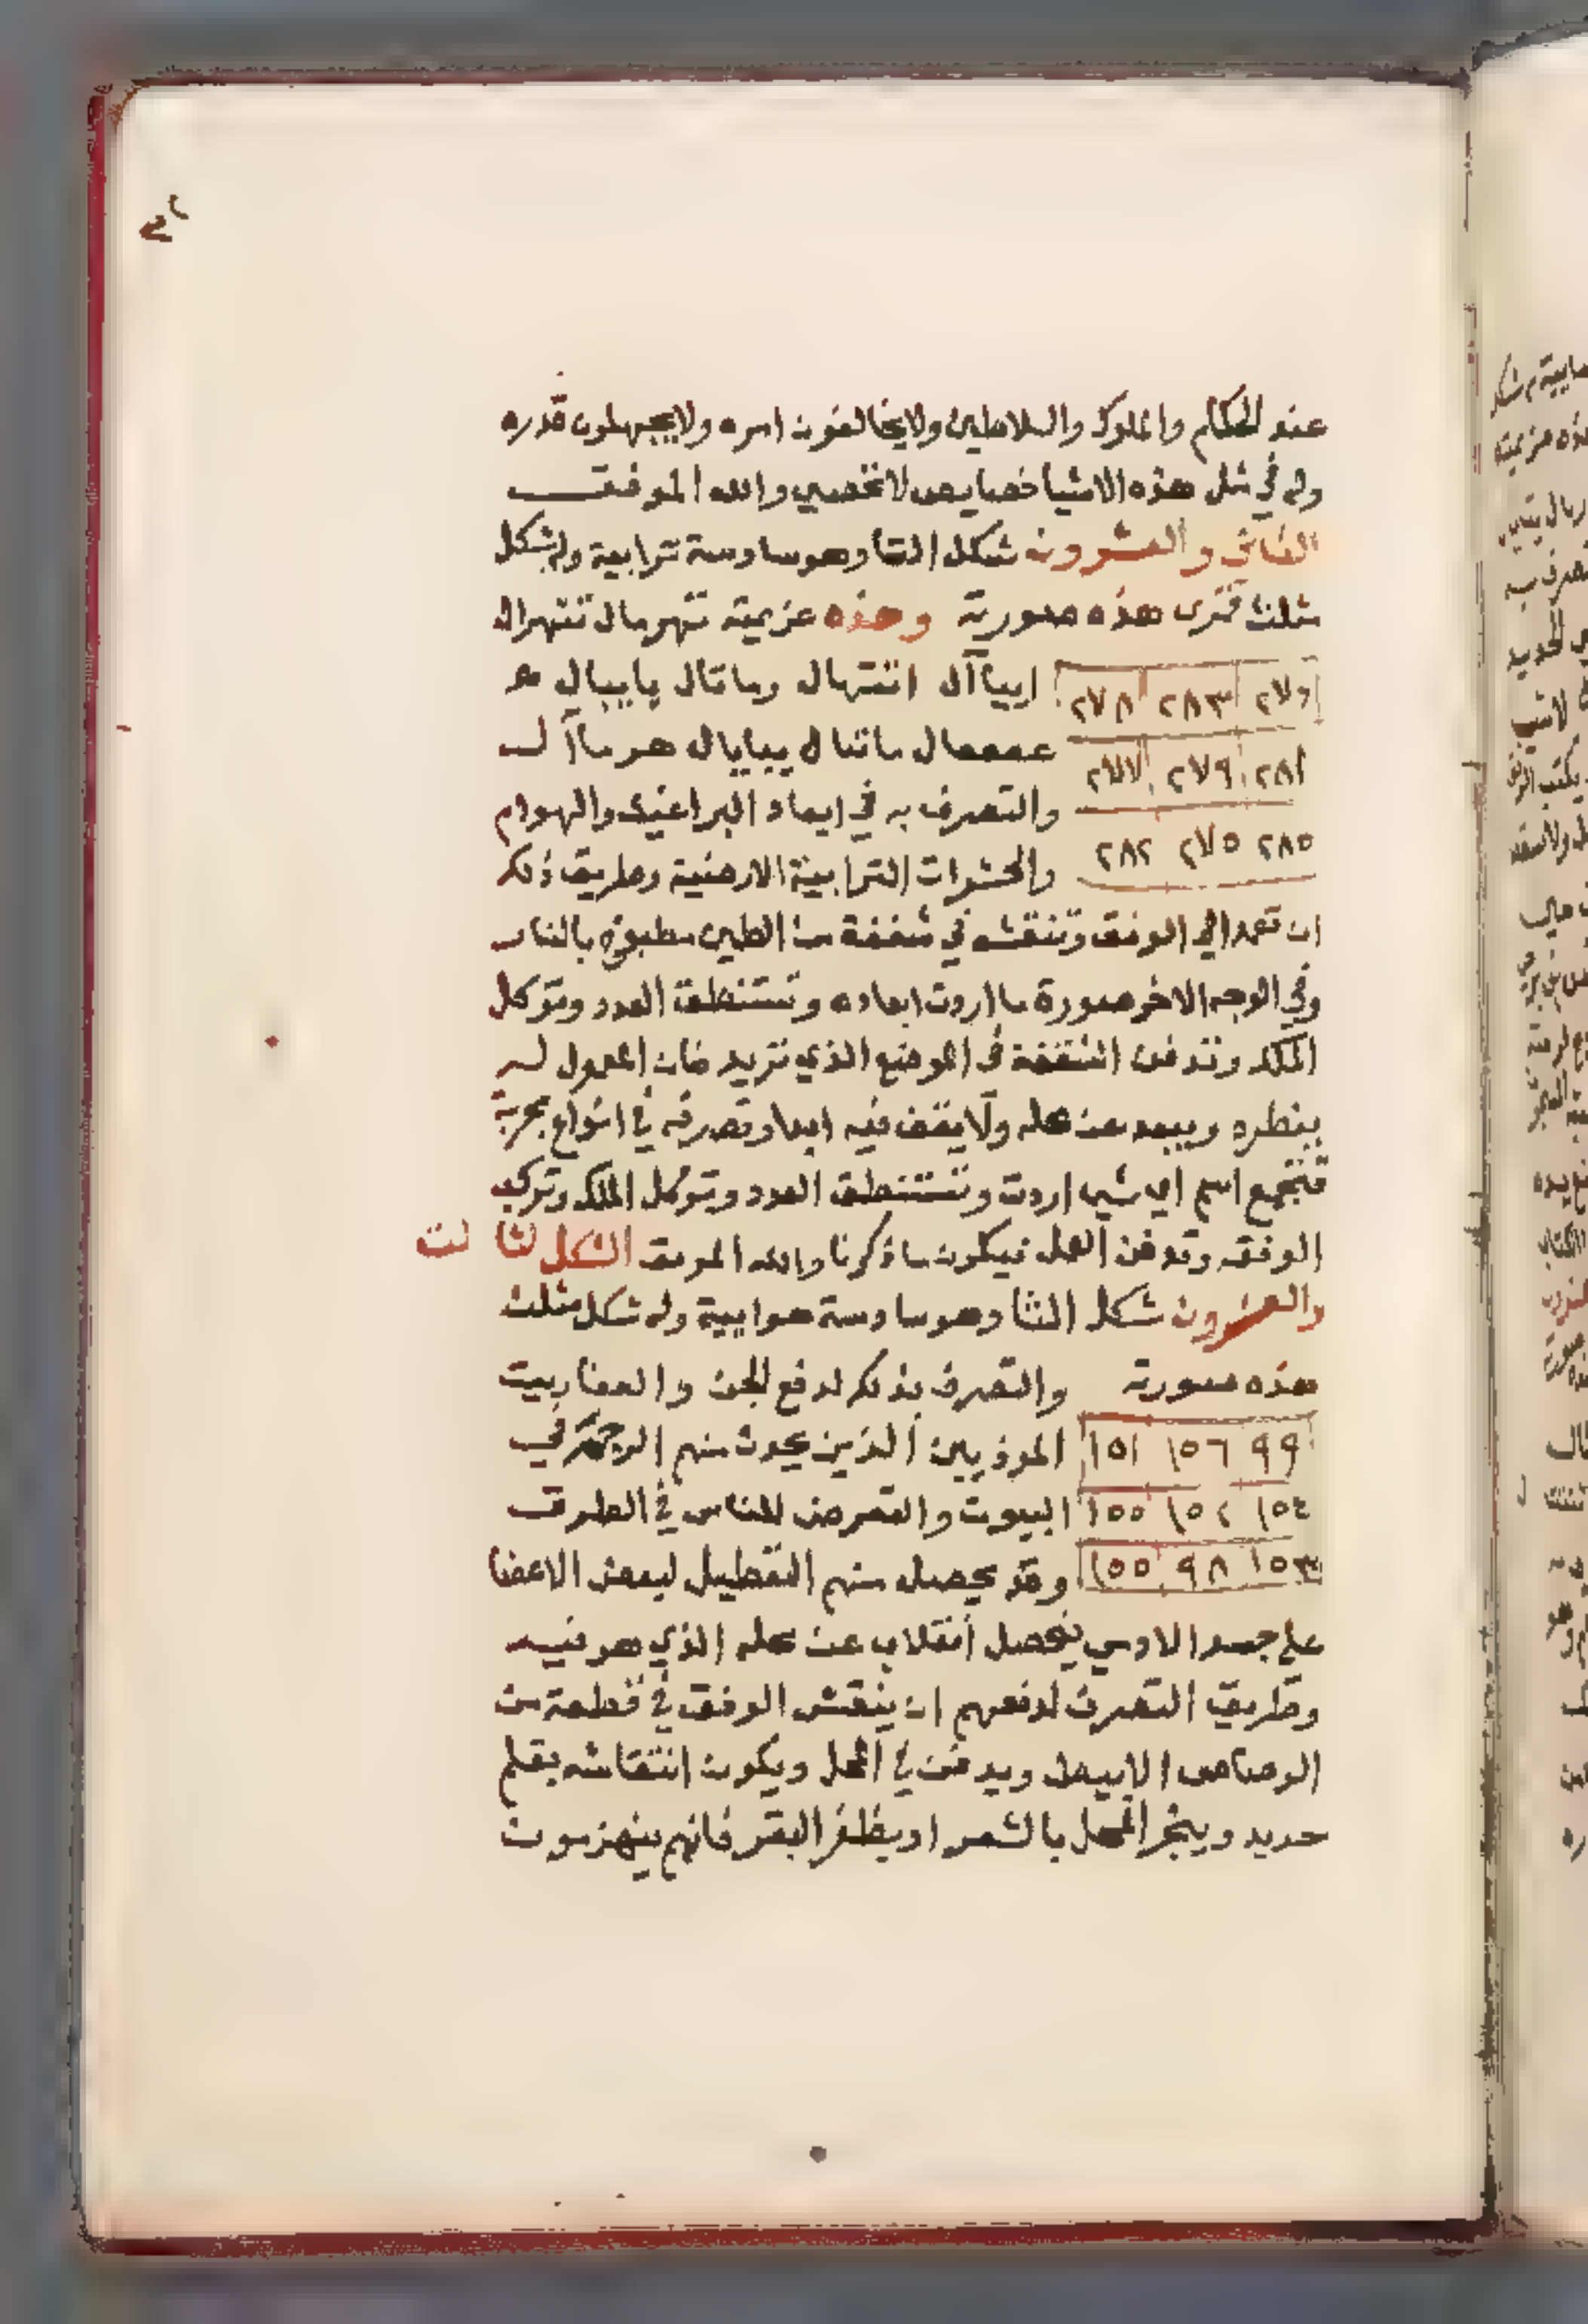 عند الحكام والملوك والسلاطين ولايخالفون امره ولايجهلون قدره
وله في مثل هذه الاشيا خصايص لاتحصي والله الموفق
الثاني والعشرون شكل التا وهو سادسة ترابية وله شكل
مثلث تري هذه صورته وهذه عزيمته تهرمال تنتهرال
ابيا آل انتهال وماتال يابيبال ه
٢٧٦ ٢٨٣ ٢٧٨
مانتال يبايال هرما آل
٢٨١ ٢٧٩ ٢٧٧
والتصرف به في ابعاد البراغيث والهوام
والحشرات الترابية الارضية وطريق ذلك
٢٨٥ ٢٧٥ ٢٨٢
ان تعمد الي الوفق وتنقشه في شقفة من الطين مطبوخة بالنار
وفي الوجه الاخر صورة ما اردت ابعاده وتستنطق العدد وتوكل
الملك وتدفن الشقفة في الموضع الذي تريد فان المعمول له
ينطرد ويبعد عن محله ولايقف فيه ابدا وتصرفه في انواع بحربة
فتجمع اسم اي شي اردت وتستنطق العدد وتوكل الملك وتركب
الوفق وتدفن العمل فيكون ماذكرنا والله الموفق الشكل الثالث
والعشرون شكل الثا وهو سادسة هوايية وله شكل مثلث
هذه صورته والتصرف بذلك لدفع الجن والعفاريت
٩٩ ١٥٦ ١٥١ الموذيين الذين يحدث منهم الرجم في
١٥٤ ١٥٢ ١٥٥ البيوت والتعرض للناس في الطرق
١٥٣ ٩٨ ١٥٥ وقد يحصل منهم التعطيل لبعض الاعضا
علي جسد الادمي فيحصل انقلاب عن محله الذي هو فيه
وطريق التصرف لدفعهم ان ينقش الوفق في قطعة من
الرصاص الابيض ويدفن في المحل ويكون انتقاشه بقلم
حديد ويبخر المحل بالشعر او بظلف البقر فانهم ينهزموت